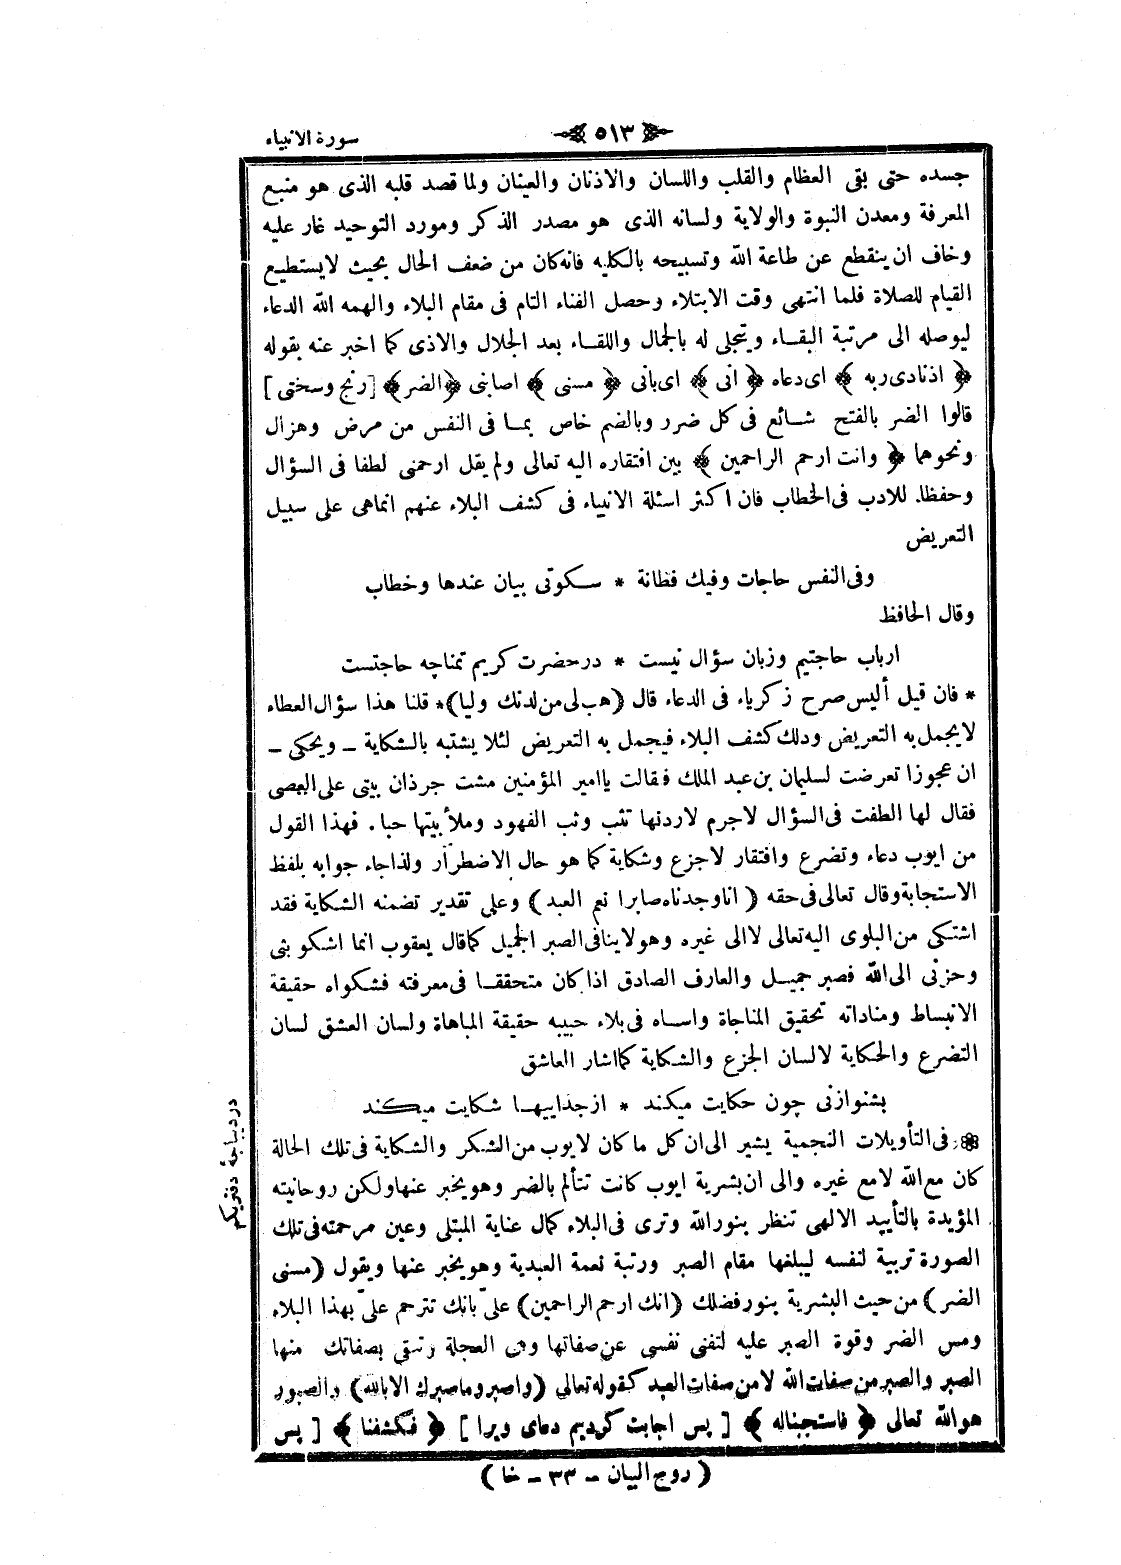 سورة الانبياء
﴿ ٥١٣ ﴾
جسده حتى بقى العظام والقلب واللسان والاذنان والعينان ولما قصد قلبه الذى هو منبع
المعرفة ومعدن النبوة والولاية ولسانه الذى هو مصدر الذكر ومورد التوحيد غار عليه
وخاف ان ينقطع عن طاعة الله وتسبيحه بالكليه فانه كان من ضعف الحال بحيث لايستطيع
القيام للصلاة فلما انتهى وقت الابتلاء وحصل الفناء التام فى مقام البلاء والهمه الله الدعاء
ليوصله الى مرتبة البقاء ويتجلى له بالجمال واللقاء بعد الجلال والاذى كما اخبر عنه بقوله
﴿ اذنادى ربه ﴾ اى دعاه ﴿ انى ﴾ اى بانى ﴿ مسنى ﴾ اصابنى ﴿ الضر ﴾ [رنج وسختى]
قالوا الضر بالفتح شائع فى كل ضرر وبالضم خاص بما فى النفس من مرض وهزال
ونحوهما ﴿ وانت ارحم الراحمين ﴾ بين افتقاره اليه تعالى ولم يقل ارحمنى لطفا فى السؤال
وحفظا للادب فى الخطاب فان اكثر اسئلة الانبياء فى كشف البلاء عنهم انماهى على سبيل
التعريض
وفى النفس حاجات وفيك فطانة * سكوتى بيان عندها وخطاب
وقال الحافظ
ارباب حاجتيم وزبان سؤال نيست * درحضرت كريم تمناچه حاجتست
* فان قيل أليس صرح زكرياء فى الدعاء قال (هب لى من لدنك وليا)* قلنا هذا سؤال العطاء
لايجمل به التعريض وذلك كشف البلاء فيجمل به التعريض لئلا يشتبه بالشكاية ــ ويحكى ــ
ان عجوزا تعرضت لسليمان بن عبد الملك فقالت ياامير المؤمنين مشت جرذان بيتى على العصى
فقال لها الطفت فى السؤال لاجرم لاردنها تثب وثب الفهود وملأ بيتها حبا . فهذا القول
من ايوب دعاء وتضرع وافتقار لاجزع وشكاية كما هو حال الاضطرار ولذا جاء جوابه بلفظ
الاستجابة وقال تعالى فى حقه ( انا وجدناه صابرا نعم العبد ) وعلى تقدير تضمنه الشكاية فقد
اشتكى من البلوى اليه تعالى لاالى غيره وهو لاينافى الصبر الجميل كماقال يعقوب انما اشكو بثى
وحزنى الى الله فصبر جميل والعارف الصادق اذا كان متحققا فى معرفته فشكواه حقيقة
الانبساط ومناداته تحقيق المناجاة واساه فى بلاء حبيبه حقيقة المباهاة ولسان العشق لسان
التضرع والحكاية لالسان الجزع والشكاية كمااشار العاشق
بشنوازنى چون حكايت ميكند * ازجداييها شكايت ميكند
در ديباجهٔ دفتر يكم
فى التأويلات النجمية يشير الى ان كل ما كان لايوب من الشكر والشكاية فى تلك الحالة
كان مع الله لامع غيره والى ان بشرية ايوب كانت تتألم بالضر وهو يخبر عنها ولكن روحانيته
المؤيدة بالتأييد الالهى تنظر بنور الله وترى فى البلاء كمال عناية المبتلى وعين مرحمته فى تلك
الصورة تربية لنفسه ليبلغها مقام الصبر ورتبة نعمة العبدية وهو يخبر عنها ويقول (مسنى
الضر) من حيث البشرية بنور فضلك (انك ارحم الراحمين) علىّ بانك تترحم علىّ بهذا البلاء
ومس الضر وقوة الصبر عليه لتفنى نفسى عن صفاتها وهى العجلة وتبقى بصفاتك منها
الصبر والصبر من صفات الله لا من صفات العبد كقوله تعالى (واصبر وماصبرك الابالله) والصبور
هو الله تعالى ﴿ فاستجبناله ﴾ [ پس اجابت كرديم دعاى ويرا ] ﴿ فكشفنا ﴾ [ پس
( روح البيان ــ ٣٣ ــ خا )